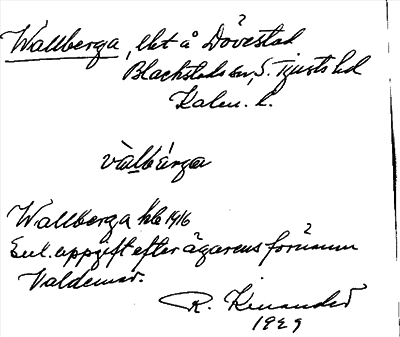 Wallberga, lht å Dövestad
Blackstads sn, S. Tjusts hd
Kalm. l.
vàlbärga
Wallberga hla 1916
Enl. uppgift efter ägarens förnamn
Valdemar.
R. Kinander
1929